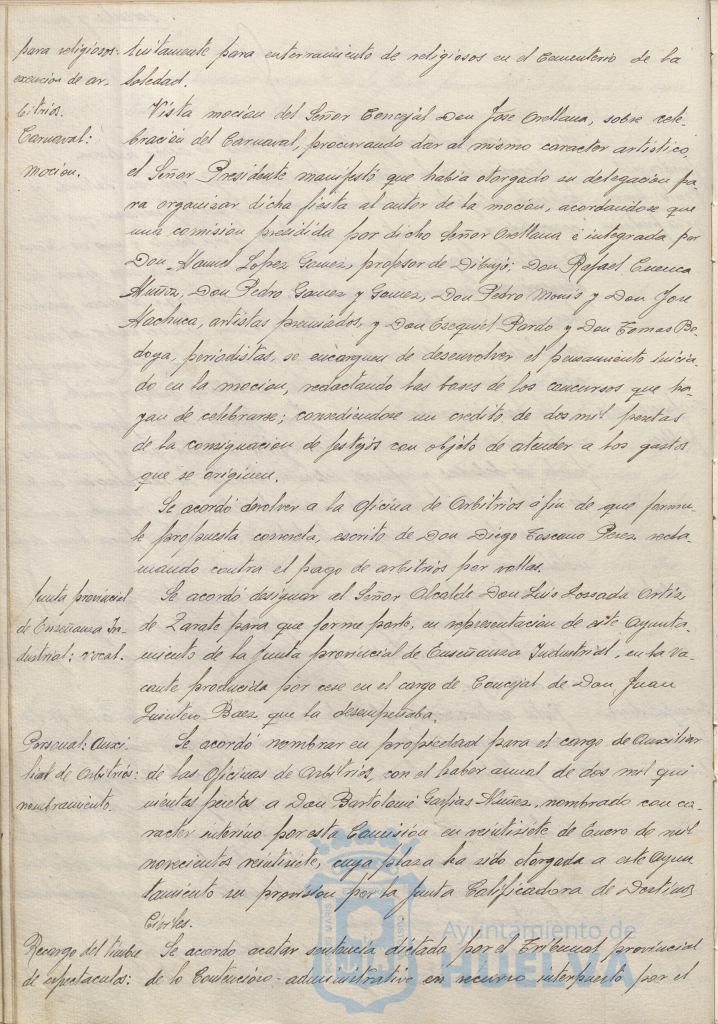 para religiosos:
exención de ar-
bitrios.
tuitamente para enterramiento de religiosos en el Cementerio de la
Soledad.
Carnaval:
moción.
Vista moción del Señor Concejal Don José Orellana, sobre cele-
bración del Carnaval, procurando dar al mismo caracter artístico,
el Señor Presidente manifestó que habia otorgado su delegación pa-
ra organizar dicha fiesta al autor de la moción, acordandose que
una comisión presidida por dicho Señor Orellana é integrada por
Don Manuel López Gomez, profesor de Dibujo; Don Rafael Cuenca
Muñoz, Don Pedro Gomez y Gomez, Don Pedro Monis y Don José
Machuca, artistas premiados, y Don Ezequiel Pardo y Don Tomas Be-
doya, periodistas, se encarguen de desenvolver el pensamiento inicia-
do en la moción, redactando las bases de los concursos que ha-
yan de celebrarse; concediendose un credito de dos mil pesetas
de la consignación de festejos con objeto de atender a los gastos
que se originen.
Se acordó devolver a la Oficina de Arbitrios á fin de que formu-
le propuesta concreta, escrito de Don Diego Toscano Perez recla-
mando contra el pago de arbitrios por vallas.
Junta provincial
de Enseñanza In-
dustrial: vocal.
Se acordó designar al Señor Alcalde Don Luis Lossada Ortiz
de Zarate para que forme parte, en representación de este Ayunta-
miento de la Junta provincial de Enseñanza Industrial, en la va-
cante producida por cese en el cargo de Concejal de Don Juan
Quintero Baez que la desempeñaba.
Personal: Auxi-
liar de Arbitrios:
nombramiento.
Se acordó nombrar en propiedad para el cargo de Auxiliar
de las Oficinas de Arbitrios, con el haber anual de dos mil qui
nientas pesetas a Don Bartolomé Garfias Muñoz, nombrado con ca-
racter interino por esta Comisión en veintisiete de Enero de mil
novecientos veintisiete, cuya plaza ha sido otorgada a este Ayun
tamiento su provisión por la Junta Calificadora de Destinos
Civiles.
Recargo del timbre
de espectaculos:
Se acordó acatar sentencia dictada por el Tribunal provincial
de lo Contencioso-administrativo en recurso interpuesto por el
Ayuntamiento de
HUELVA